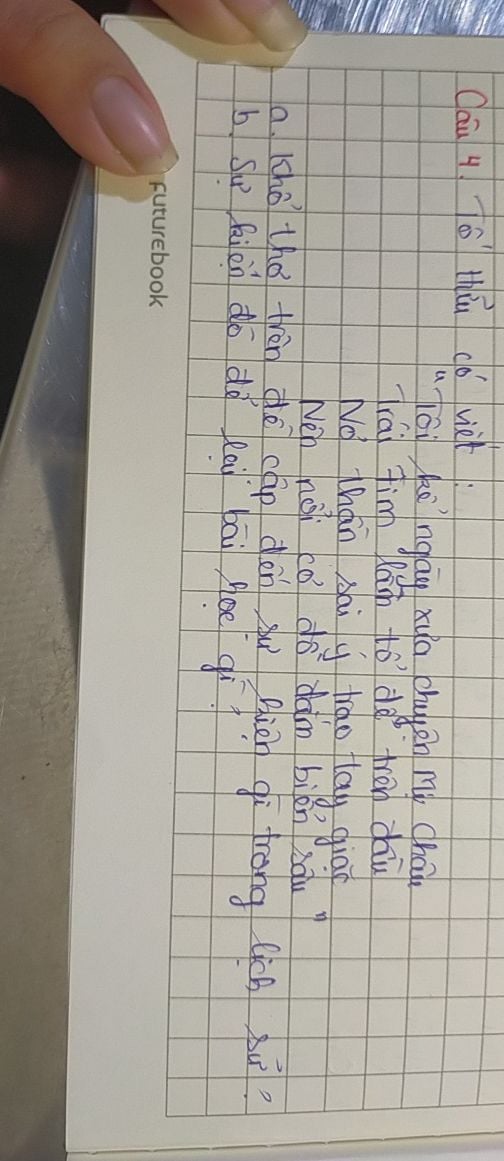 Câu 4. Tố Hữu có viết:
"Tôi kể ngày xưa chuyện Mị Châu
Trái tim lầm tổ để trên đầu
Nỏ thần sai ý trao tay giặc
Nên nỗi cơ đồ đắm biển sâu"
a. Khổ thơ trên đề cập đến sự kiện gì trong lịch sử?
b. Sự kiện đó để lại bài học gì?
FUTUREBOOK